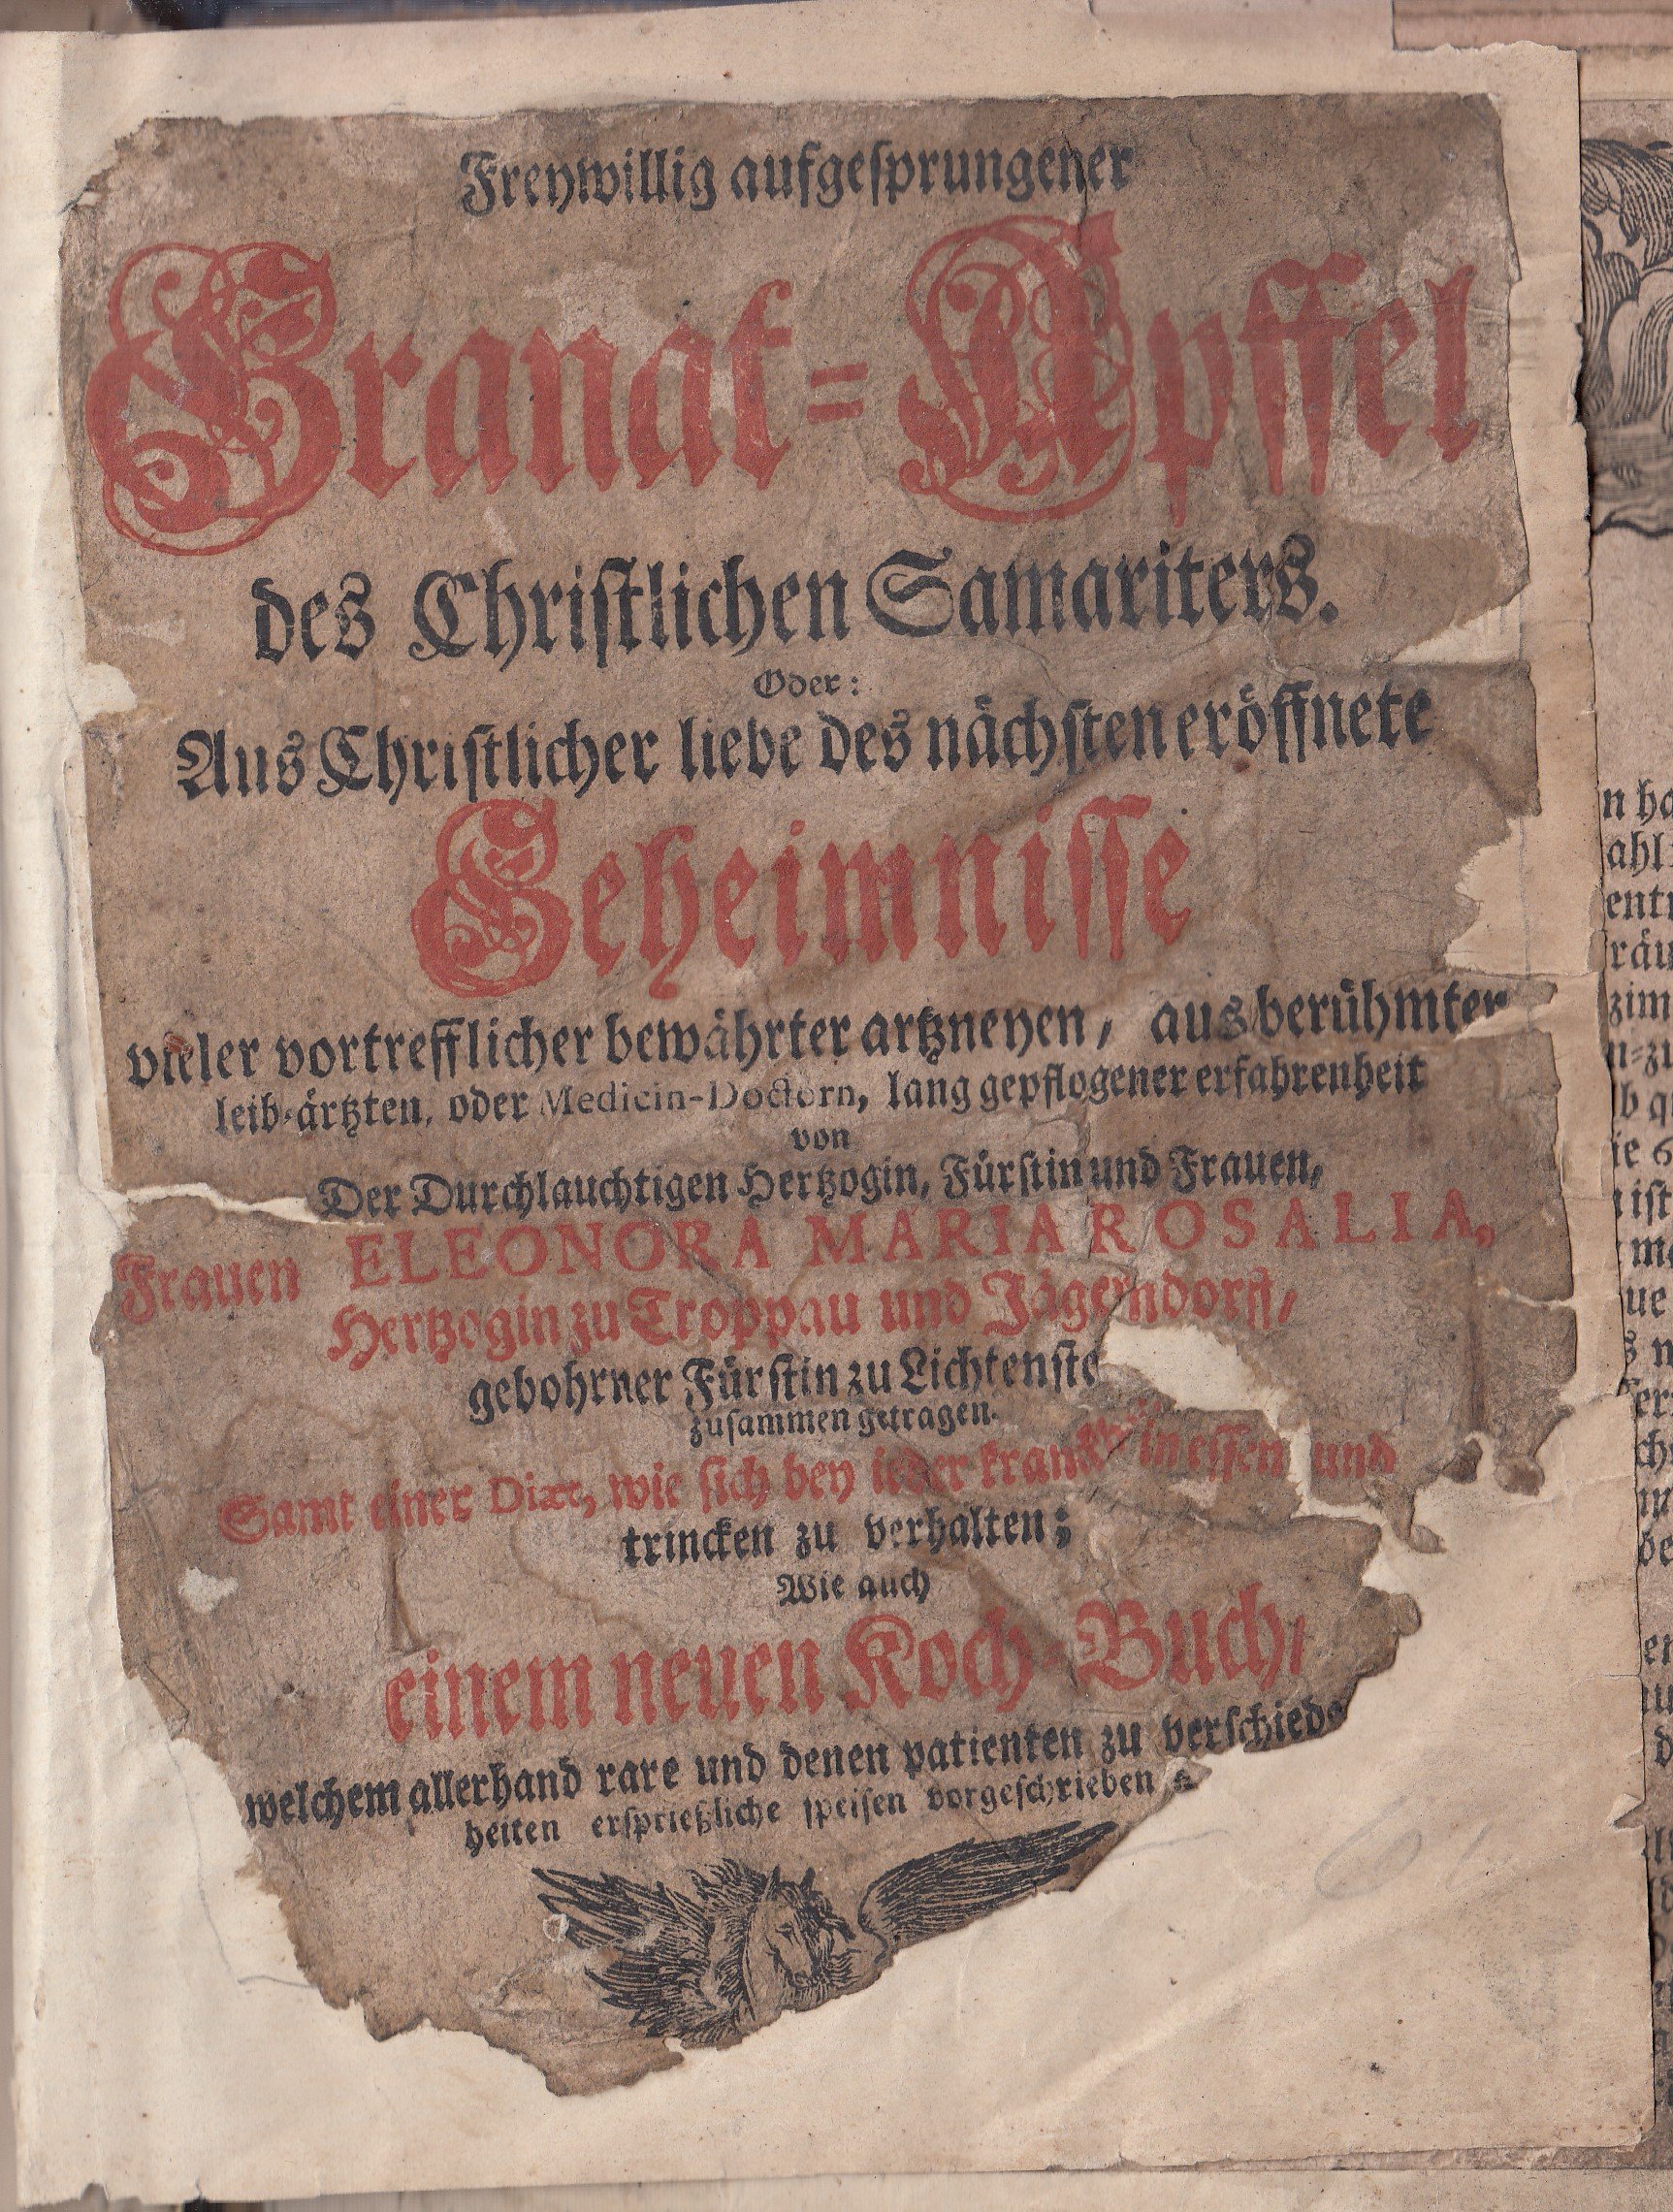 Freywillig aufgesprungener
Granat=Apffel
des Christlichen Samariters.
Oder:
Aus Christlicher liebe des nächsten eröffnete
Geheimnisse
vieler vortrefflicher bewährter artzneyen, aus berühmter
leib-ärtzten, oder Medicin-Doctorn, lang gepflogener erfahrenheit
von
Der Durchlauchtigen Hertzogin, Fürstin und Frauen,
Frauen ELEONORA MARIA ROSALIA,
Hertzogin zu Troppau und Jägerndorff,
gebohrner Fürstin zu Lichtenste
zusammen getragen.
Samt einer Diæt, wie sich bey ieder kranckh in essen und
trincken zu verhalten;
Wie auch
einem neuen Koch-Buch,
welchem allerhand rare und denen patienten zu verschiede
heiten ersprießliche speisen vorgeschrieben
n ha
ahl
ent
räu
zim
n=zu
b q
ie 6
ist
ma
ue
s n
fer
ch
m
de